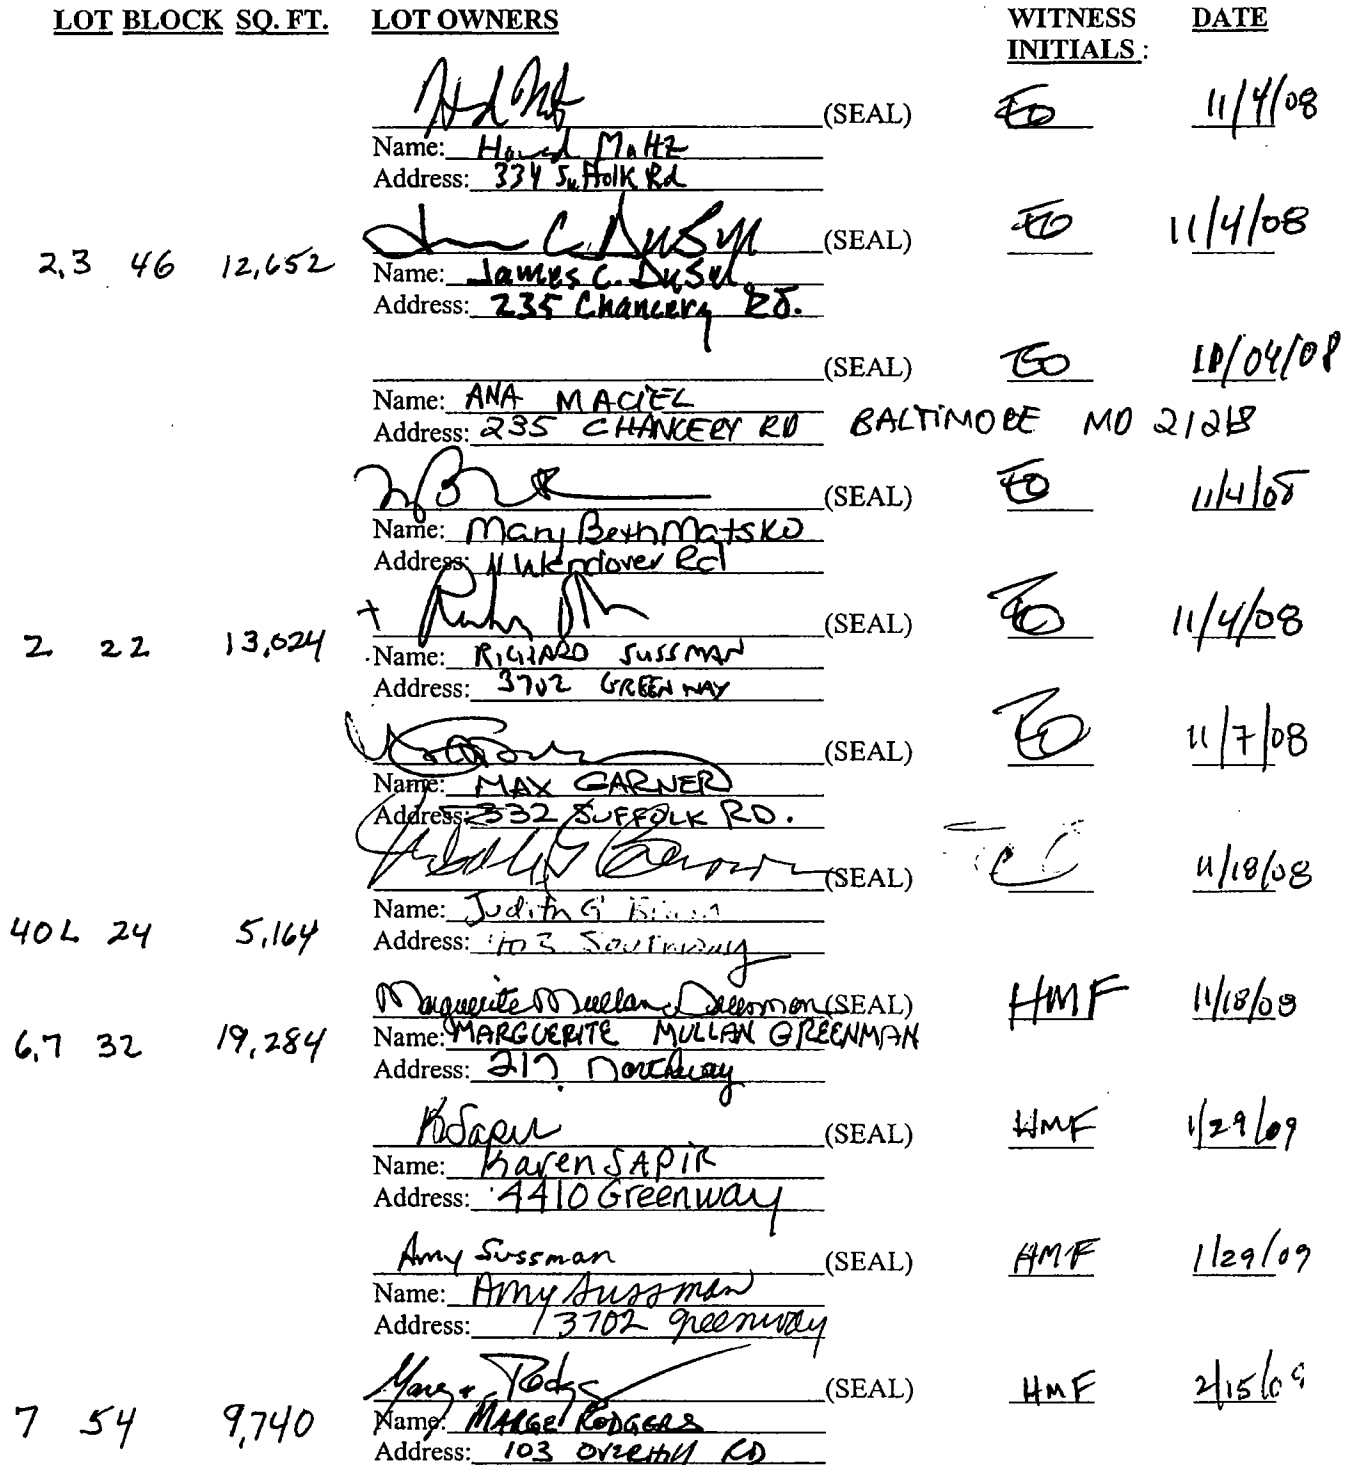 LOT BLOCK SQ. FT. LOT OWNERS WITNESS INITIALS: DATE
(SEAL) EO 11/4/08
Name: Howard Maltz
Address: 334 Suffolk Rd
(SEAL) EO 11/4/08
2,3 46 12,652 Name: James C. DuSel
Address: 235 Chancery RD.
(SEAL) EO 11/04/08
Name: ANA MACIEL
Address: 235 CHANCERY RD BALTIMORE MD 21218
(SEAL) EO 11/4/08
Name: Mary Beth Matsko
Address: 11 Wendover Rd
+ (SEAL) EO 11/4/08
2 22 13,024 Name: RICHARD SUSSMAN
Address: 3702 GREENWAY
(SEAL) EO 11/7/08
Name: MAX GARNER
Address: 332 SUFFOLK RD.
(SEAL) 11/18/08
Name: Judith G
40L 24 5,164 Address: 103 Southway
Marguerite Mullan Greenman (SEAL) HMF 11/18/08
6,7 32 19,284 Name: MARGUERITE MULLAN GREENMAN
Address: 217 Northway
KSapir (SEAL) HMF 1/29/09
Name: Karen SAPIR
Address: 4410 Greenway
Amy Sussman (SEAL) HMF 1/29/09
Name: Amy Sussman
Address: 3702 greenway
(SEAL) HMF 2/15/09
7 54 9,740 Name: MARGE RODGERS
Address: 103 OVERHILL RD